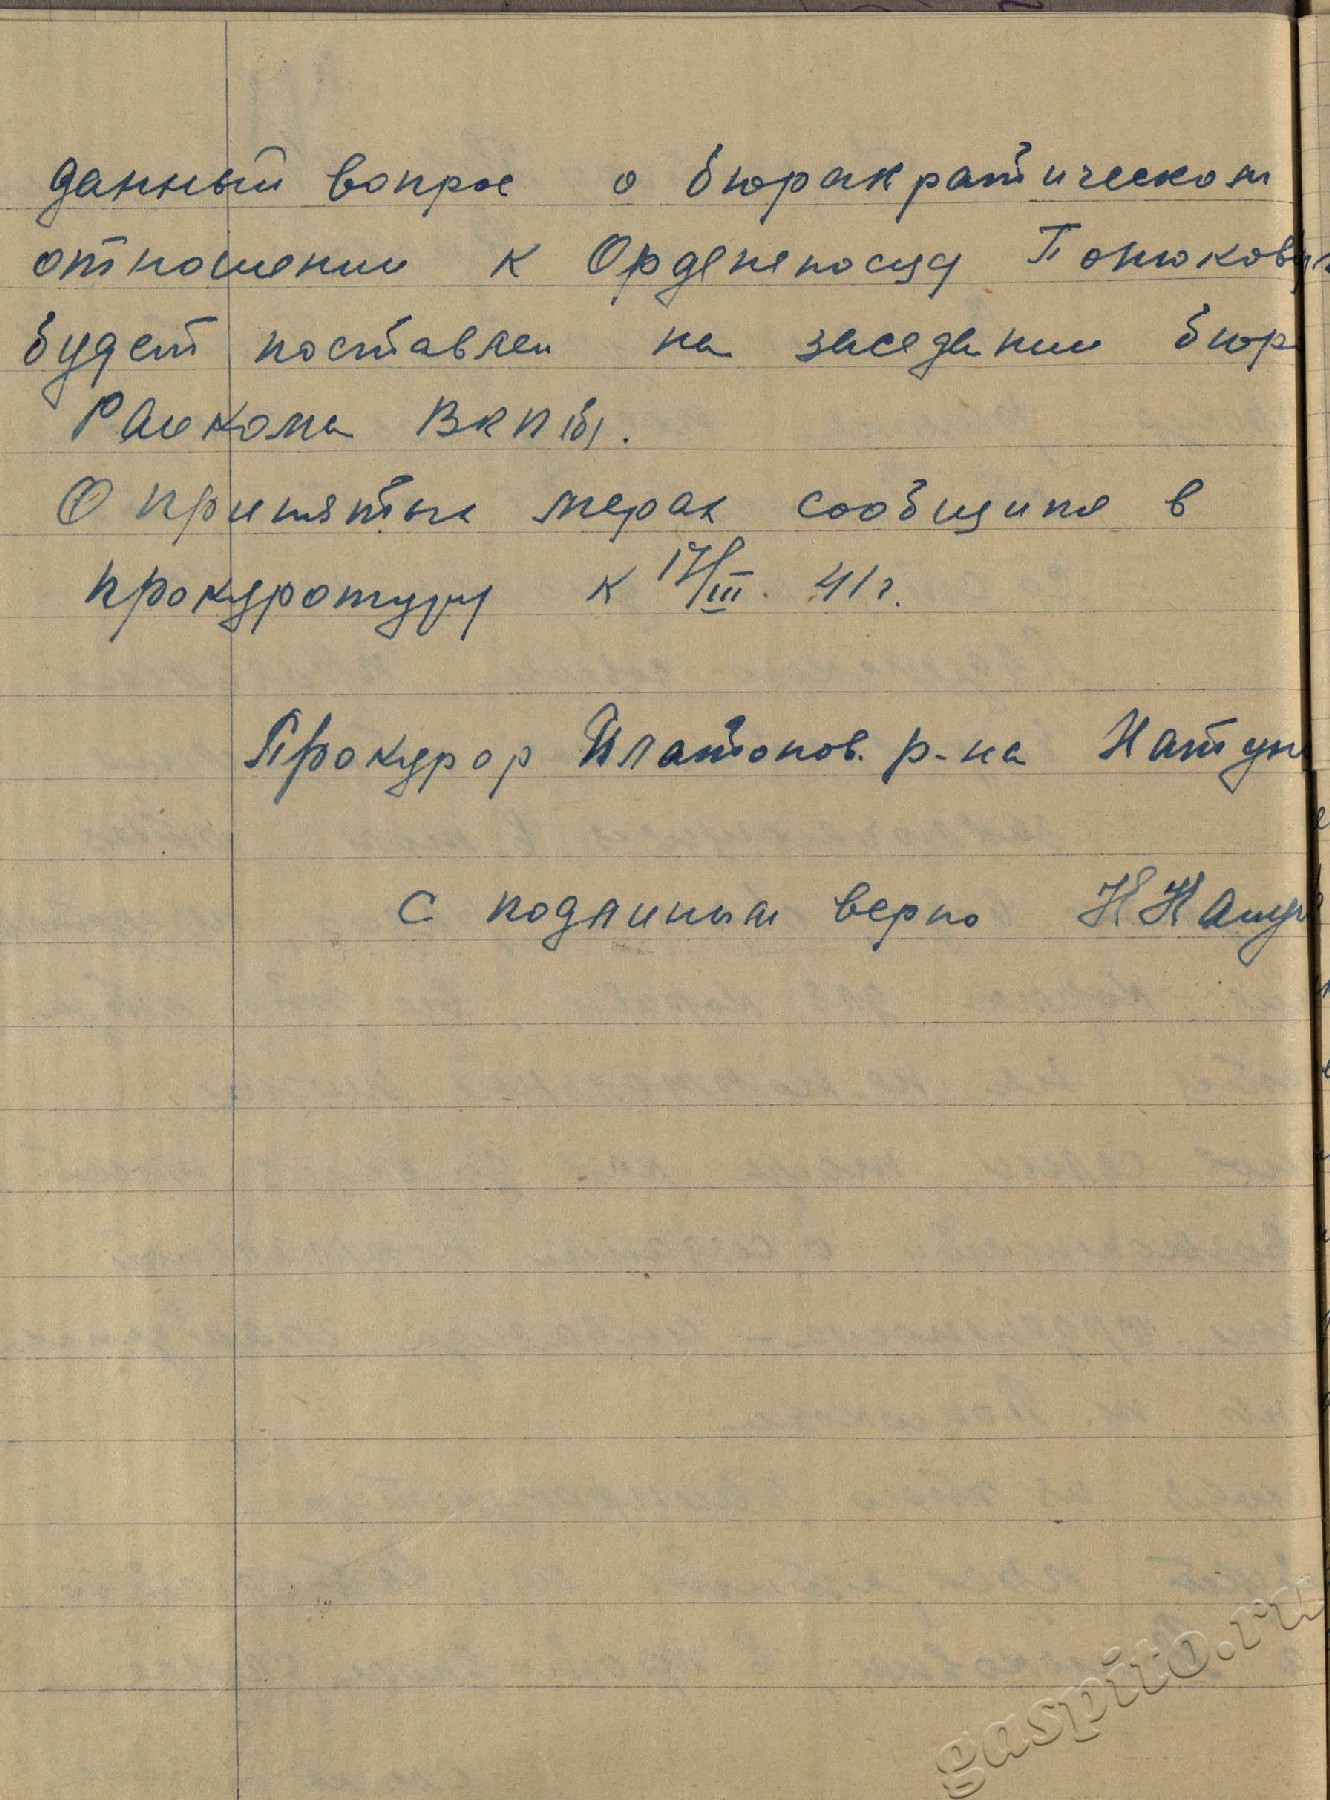 данный вопрос о бюракратическом
отношении к Орденоносцу Понюкову
будет поставлен на заседании бюр
Райкома ВКП(б).
О принятых мерах сообщите в
прокуротуру к 17/III. 41г.
Прокурор Платонов. р-на
С подлиным верно
gaspito.ru